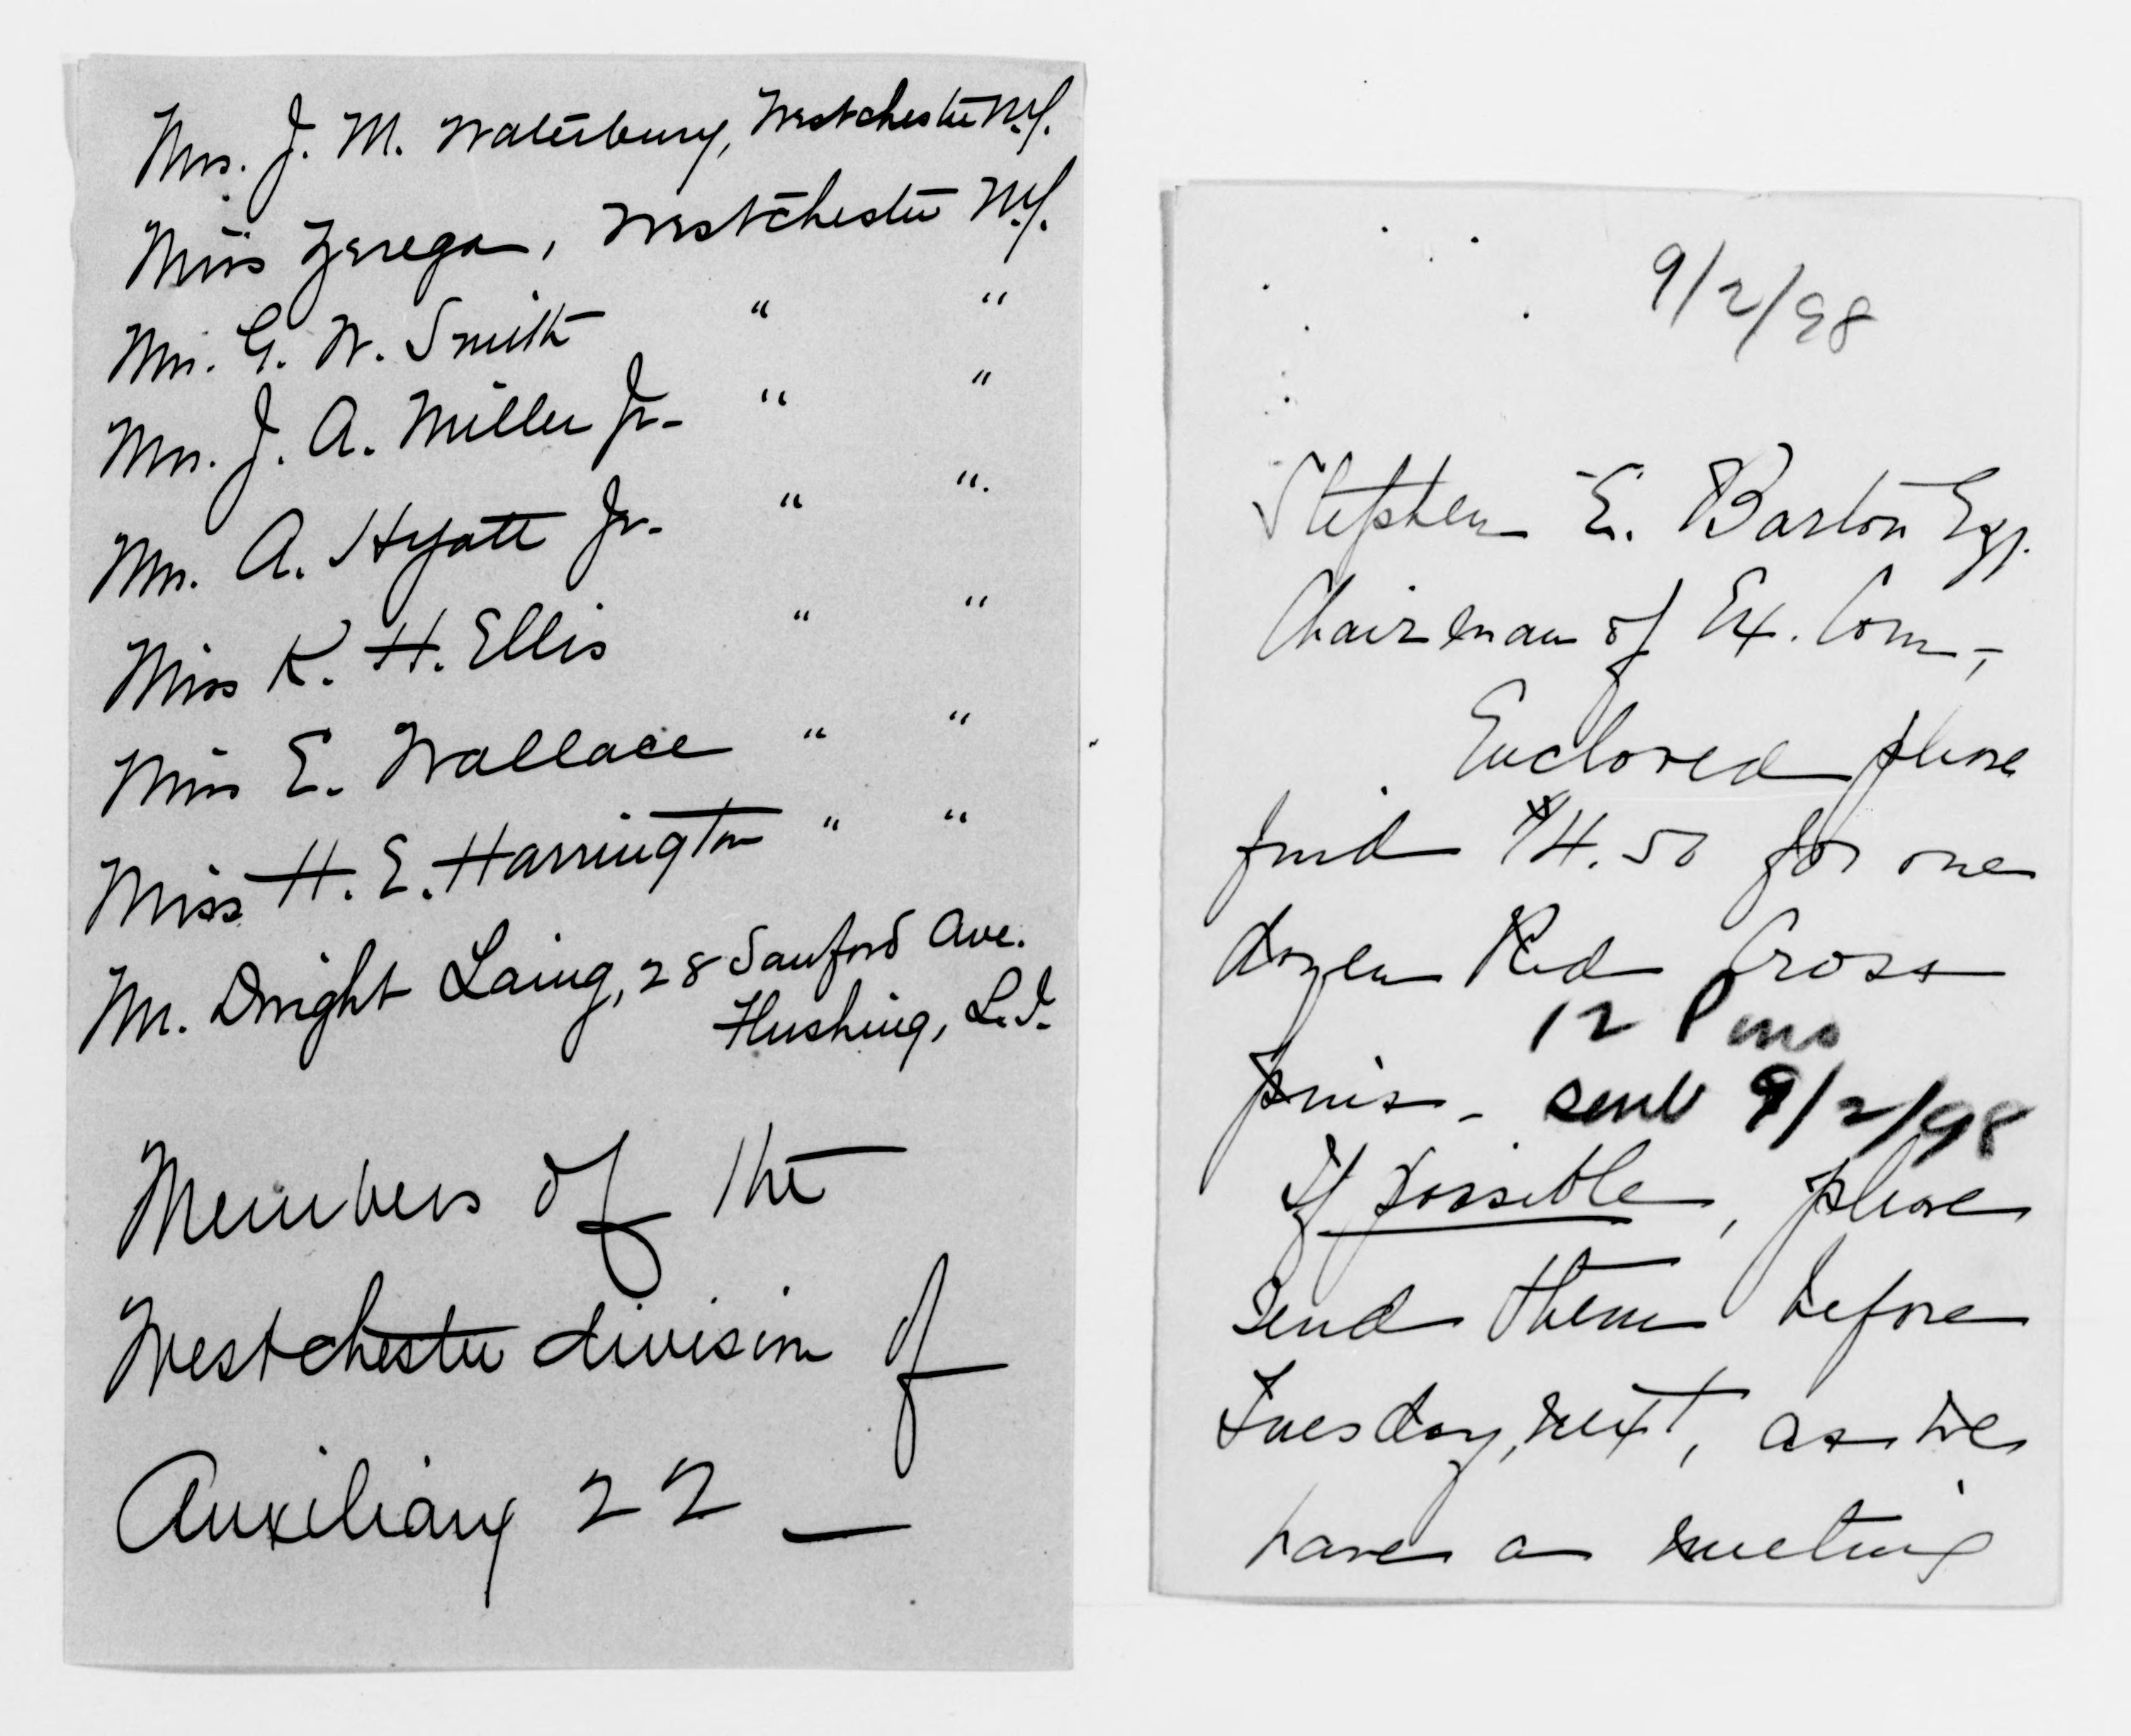 Mrs. J. M. Waterbury, Westchester N.Y.
Miss Zerega, Westchester N.Y.
Mrs. G. W. Smith " "
Mrs. J. A. Miller Jr. " "
Mrs. A. Hyatt Jr. " ".
Miss K. H. Ellis " "
Miss E. Wallace " "
Miss H. E. Harrington " "
Mr. Dwight Laing, 28 Sanford Ave.
Flushing, L.I.
Members of the
Westchester division of
Auxiliary 22 —
9/2/98
Stephen E. Barton Esq.
Chairman of Ex. Com—,
Enclosed please
find $4.50 for one
dozen Red Cross
12 Pins
pins. - sent 9/2/98
If possible, please
send them before
Tuesday, next, as we
have a meeting